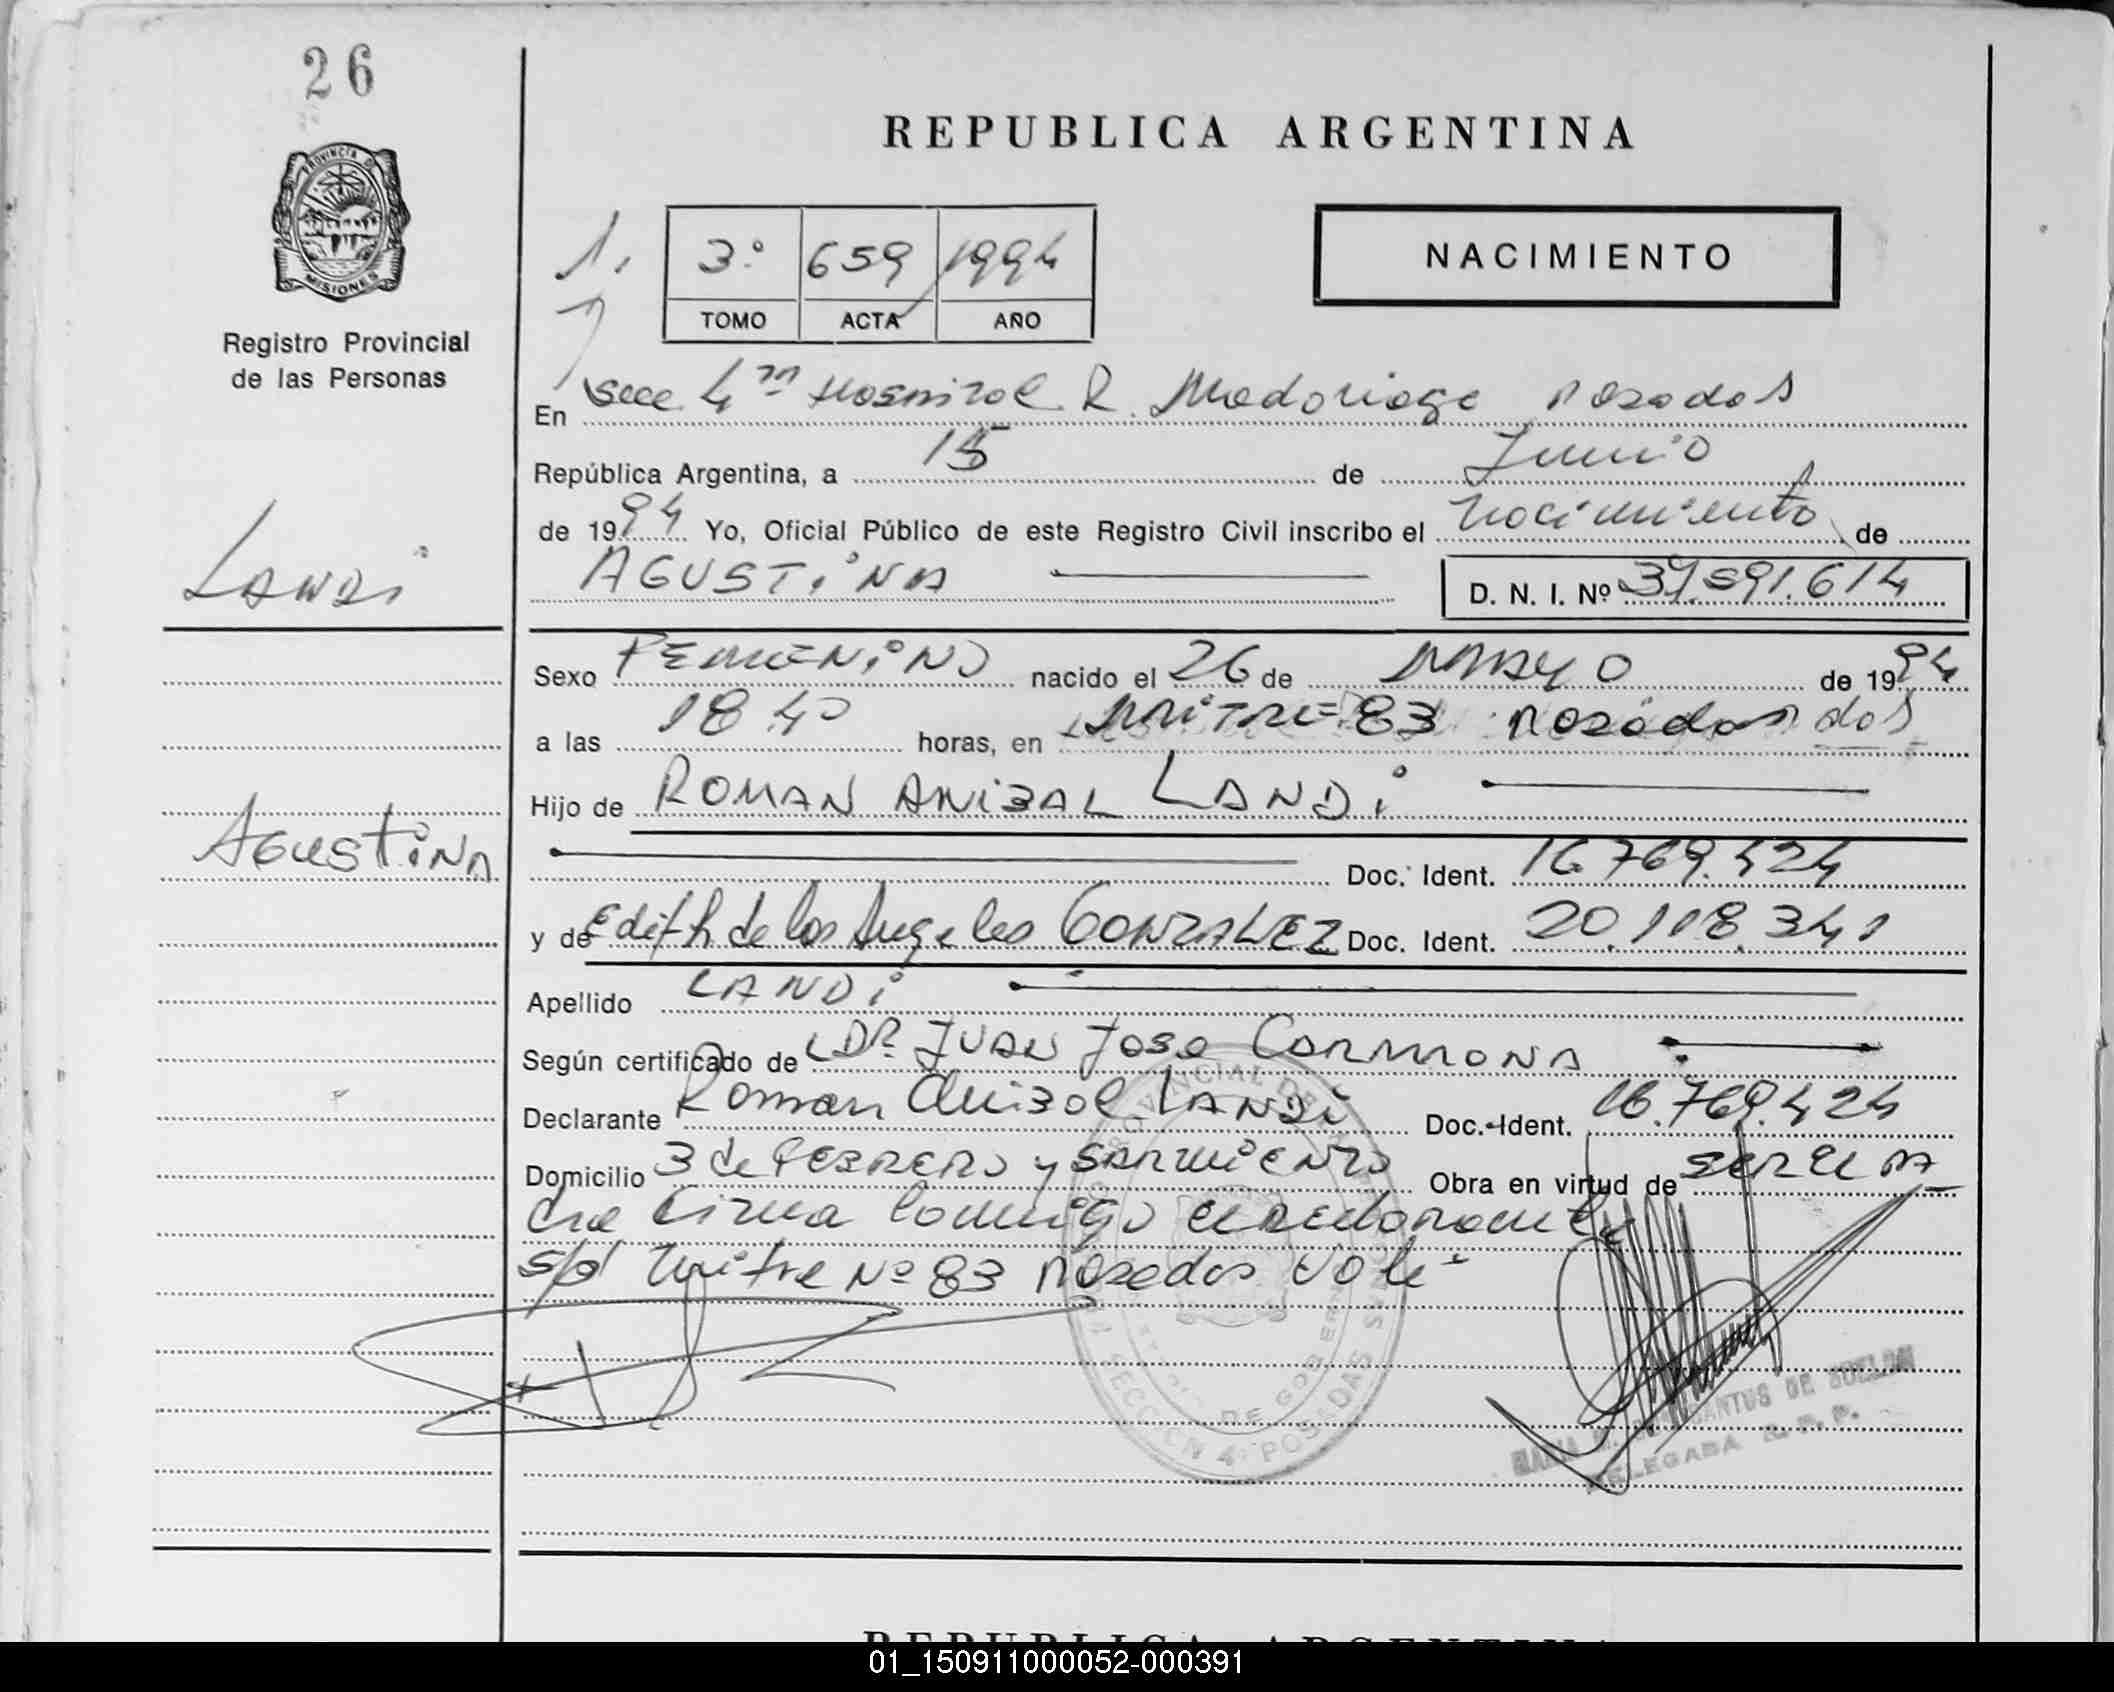 26
PROVINCIA DE
MISIONES
Registro Provincial
de las Personas
REPUBLICA ARGENTINA
NACIMIENTO
1.
3º 659 1994
TOMO ACTA AÑO
En Secc 4ta Hospital R. Madariaga Posadas
República Argentina, a 15 de Junio
de 1994 Yo, Oficial Público de este Registro Civil inscribo el nacimiento de
AGUSTINA D. N. I. Nº 591.614
LANDI
Sexo FEMENINO nacido el 26 de MAYO de 1994
a las 18 40 horas, en MITRE 83 Posadas
Hijo de ROMAN ANIBAL LANDI
AGUSTINA
Doc. Ident. 16.769.424
y de Edith de los Angeles GONZALEZ Doc. Ident. 20.118.341
Apellido LANDI
Según certificado de DR. JUAN JOSE CARMONA
Declarante Roman Anibal LANDI Doc. Ident. 16.769.424
Domicilio 3 de FEBRERO y SARMIENTO Obra en virtud de
firma conmigo
s/d Mitre Nº 83 Posadas Vale
SECCION 4 POSADAS
DE SUELDO
DELEGADA R. P. P.
REPUBLICA ARGENTINA
01_150911000052-000391